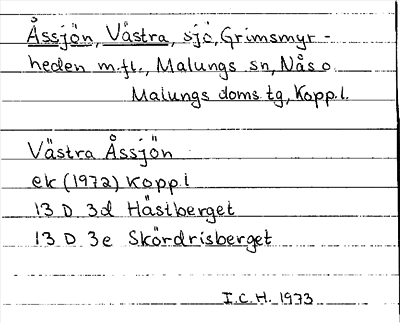 Åssjön, Västra, sjö, Grimsmyr-
heden m.fl., Malungs sn, Nås o
Malungs doms.tg, Kopp.l.
Västra Åssjön
ek (1972) Kopp.l
13 D 3d Hästberget
13 D 3e Skördrisberget
I.C.H. 1973